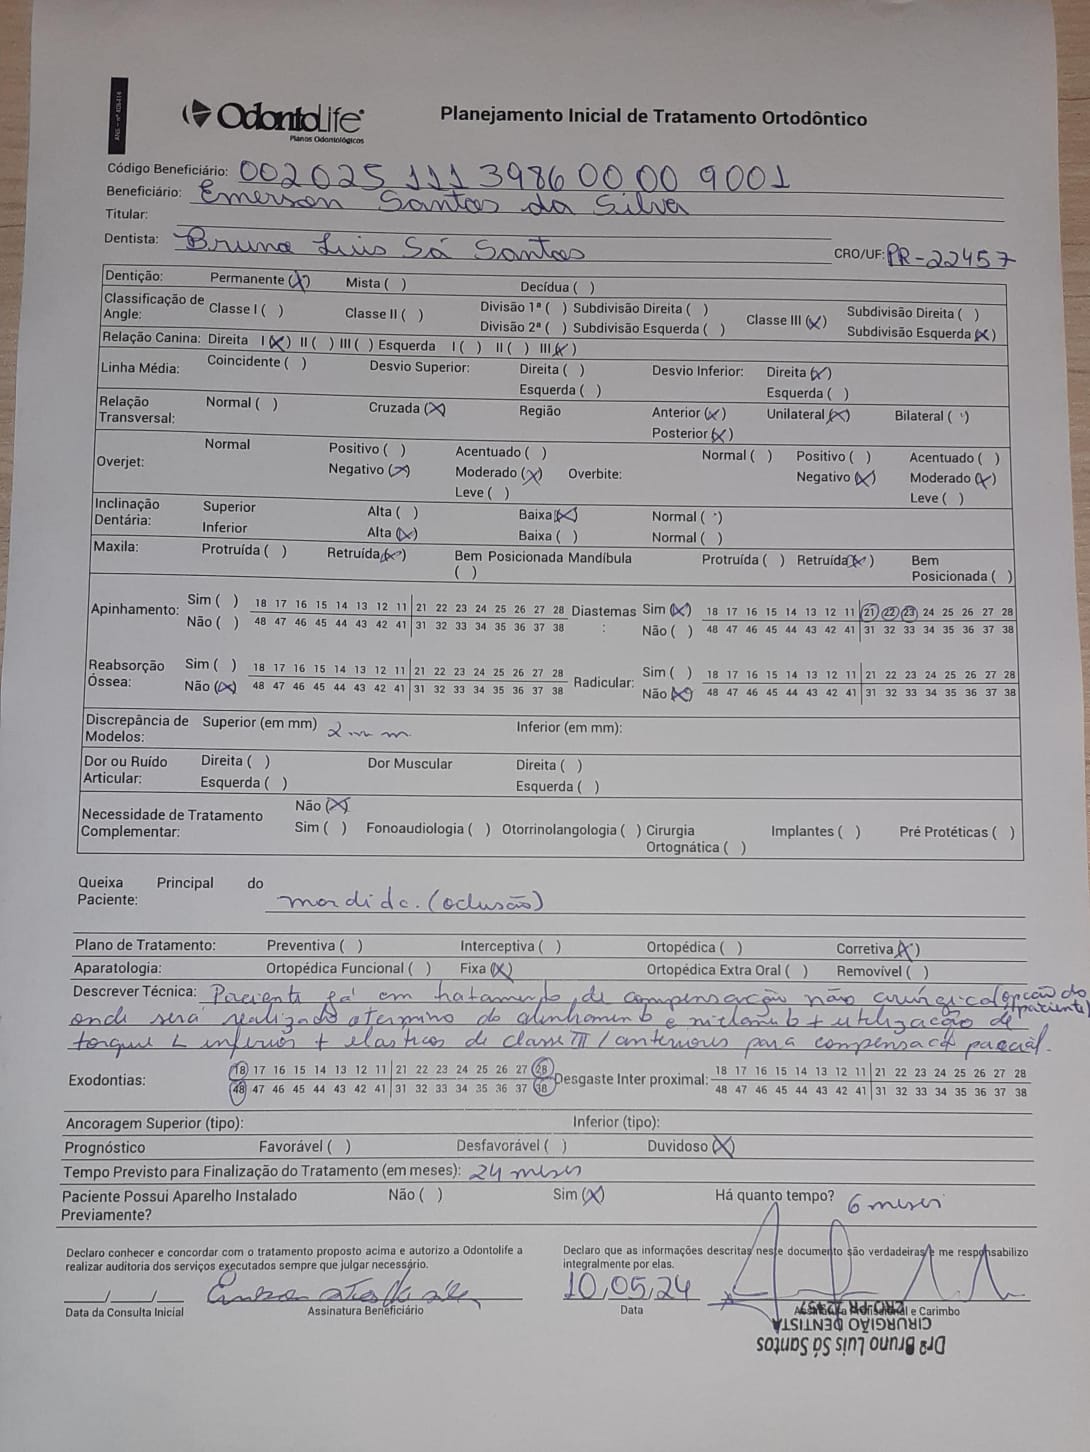 ANS - nº 406414
OdontoLife
Planos Odontológicos
Planejamento Inicial de Tratamento Ortodôntico
Código Beneficiário: 002025 111 3986 00 00 9001
Beneficiário: Emerson Santos da Silva
Titular:
Dentista: Bruno Luis Sá Santos CRO/UF: PR-22457
Dentição: Permanente (X) Mista ( ) Decídua ( )
Classificação de Angle: Classe I ( ) Classe II ( ) Divisão 1ª ( ) Subdivisão Direita ( ) Classe III (X) Subdivisão Direita ( )
Divisão 2ª ( ) Subdivisão Esquerda ( ) Subdivisão Esquerda (X)
Relação Canina: Direita I (X) II ( ) III ( ) Esquerda I ( ) II ( ) III (X)
Linha Média: Coincidente ( ) Desvio Superior: Direita ( ) Desvio Inferior: Direita (X)
Esquerda ( ) Esquerda ( )
Relação Transversal: Normal ( ) Cruzada (X) Região Anterior (X) Unilateral (X) Bilateral ( )
Posterior (X)
Overjet: Normal Positivo ( ) Acentuado ( ) Overbite: Normal ( ) Positivo ( ) Acentuado ( )
Negativo (X) Moderado (X) Negativo (X) Moderado (X)
Leve ( ) Leve ( )
Inclinação Dentária: Superior Alta ( ) Baixa (X) Normal ( )
Inferior Alta (X) Baixa ( ) Normal ( )
Maxila: Protruída ( ) Retruída (X) Bem Posicionada ( ) Mandíbula Protruída ( ) Retruída (X) Bem Posicionada ( )
Apinhamento: Sim ( ) 18 17 16 15 14 13 12 11 21 22 23 24 25 26 27 28 Diastemas: Sim (X) 18 17 16 15 14 13 12 11 21 22 23 24 25 26 27 28
Não ( ) 48 47 46 45 44 43 42 41 31 32 33 34 35 36 37 38 Não ( ) 48 47 46 45 44 43 42 41 31 32 33 34 35 36 37 38
Reabsorção Óssea: Sim ( ) 18 17 16 15 14 13 12 11 21 22 23 24 25 26 27 28 Radicular: Sim ( ) 18 17 16 15 14 13 12 11 21 22 23 24 25 26 27 28
Não (X) 48 47 46 45 44 43 42 41 31 32 33 34 35 36 37 38 Não (X) 48 47 46 45 44 43 42 41 31 32 33 34 35 36 37 38
Discrepância de Modelos: Superior (em mm) 2 mm Inferior (em mm):
Dor ou Ruído Articular: Direita ( ) Dor Muscular Direita ( )
Esquerda ( ) Esquerda ( )
Necessidade de Tratamento Complementar: Não (X)
Sim ( ) Fonoaudiologia ( ) Otorrinolangologia ( ) Cirurgia Ortognática ( ) Implantes ( ) Pré Protéticas ( )
Queixa Principal do Paciente: mordida. (oclusão)
Plano de Tratamento: Preventiva ( ) Interceptiva ( ) Ortopédica ( ) Corretiva (X)
Aparatologia: Ortopédica Funcional ( ) Fixa (X) Ortopédica Extra Oral ( ) Removível ( )
Descrever Técnica: Paciente já em tratamento de compensação não cirúrgico (opção do paciente)
onde será realizado o termino do alinhamento e nivelamento + utilização de
torque L inferior + elasticos de classe III / anteriores para compensação parcial.
Exodontias: 18 17 16 15 14 13 12 11 21 22 23 24 25 26 27 28 Desgaste Inter proximal: 18 17 16 15 14 13 12 11 21 22 23 24 25 26 27 28
48 47 46 45 44 43 42 41 31 32 33 34 35 36 37 38 48 47 46 45 44 43 42 41 31 32 33 34 35 36 37 38
Ancoragem Superior (tipo): Inferior (tipo):
Prognóstico Favorável ( ) Desfavorável ( ) Duvidoso (X)
Tempo Previsto para Finalização do Tratamento (em meses): 24 meses
Paciente Possui Aparelho Instalado Previamente? Não ( ) Sim (X) Há quanto tempo? 6 meses
Declaro conhecer e concordar com o tratamento proposto acima e autorizo a Odontolife a
realizar auditoria dos serviços executados sempre que julgar necessário.
Declaro que as informações descritas neste documento são verdadeiras e me responsabilizo
integralmente por elas.
10,05,24
Data da Consulta Inicial Assinatura Beneficiário Data Assinatura Profissional e Carimbo
Drº Bruno Luis Sá Santos
CIRURGIÃO DENTISTA
CRO-PR 22457